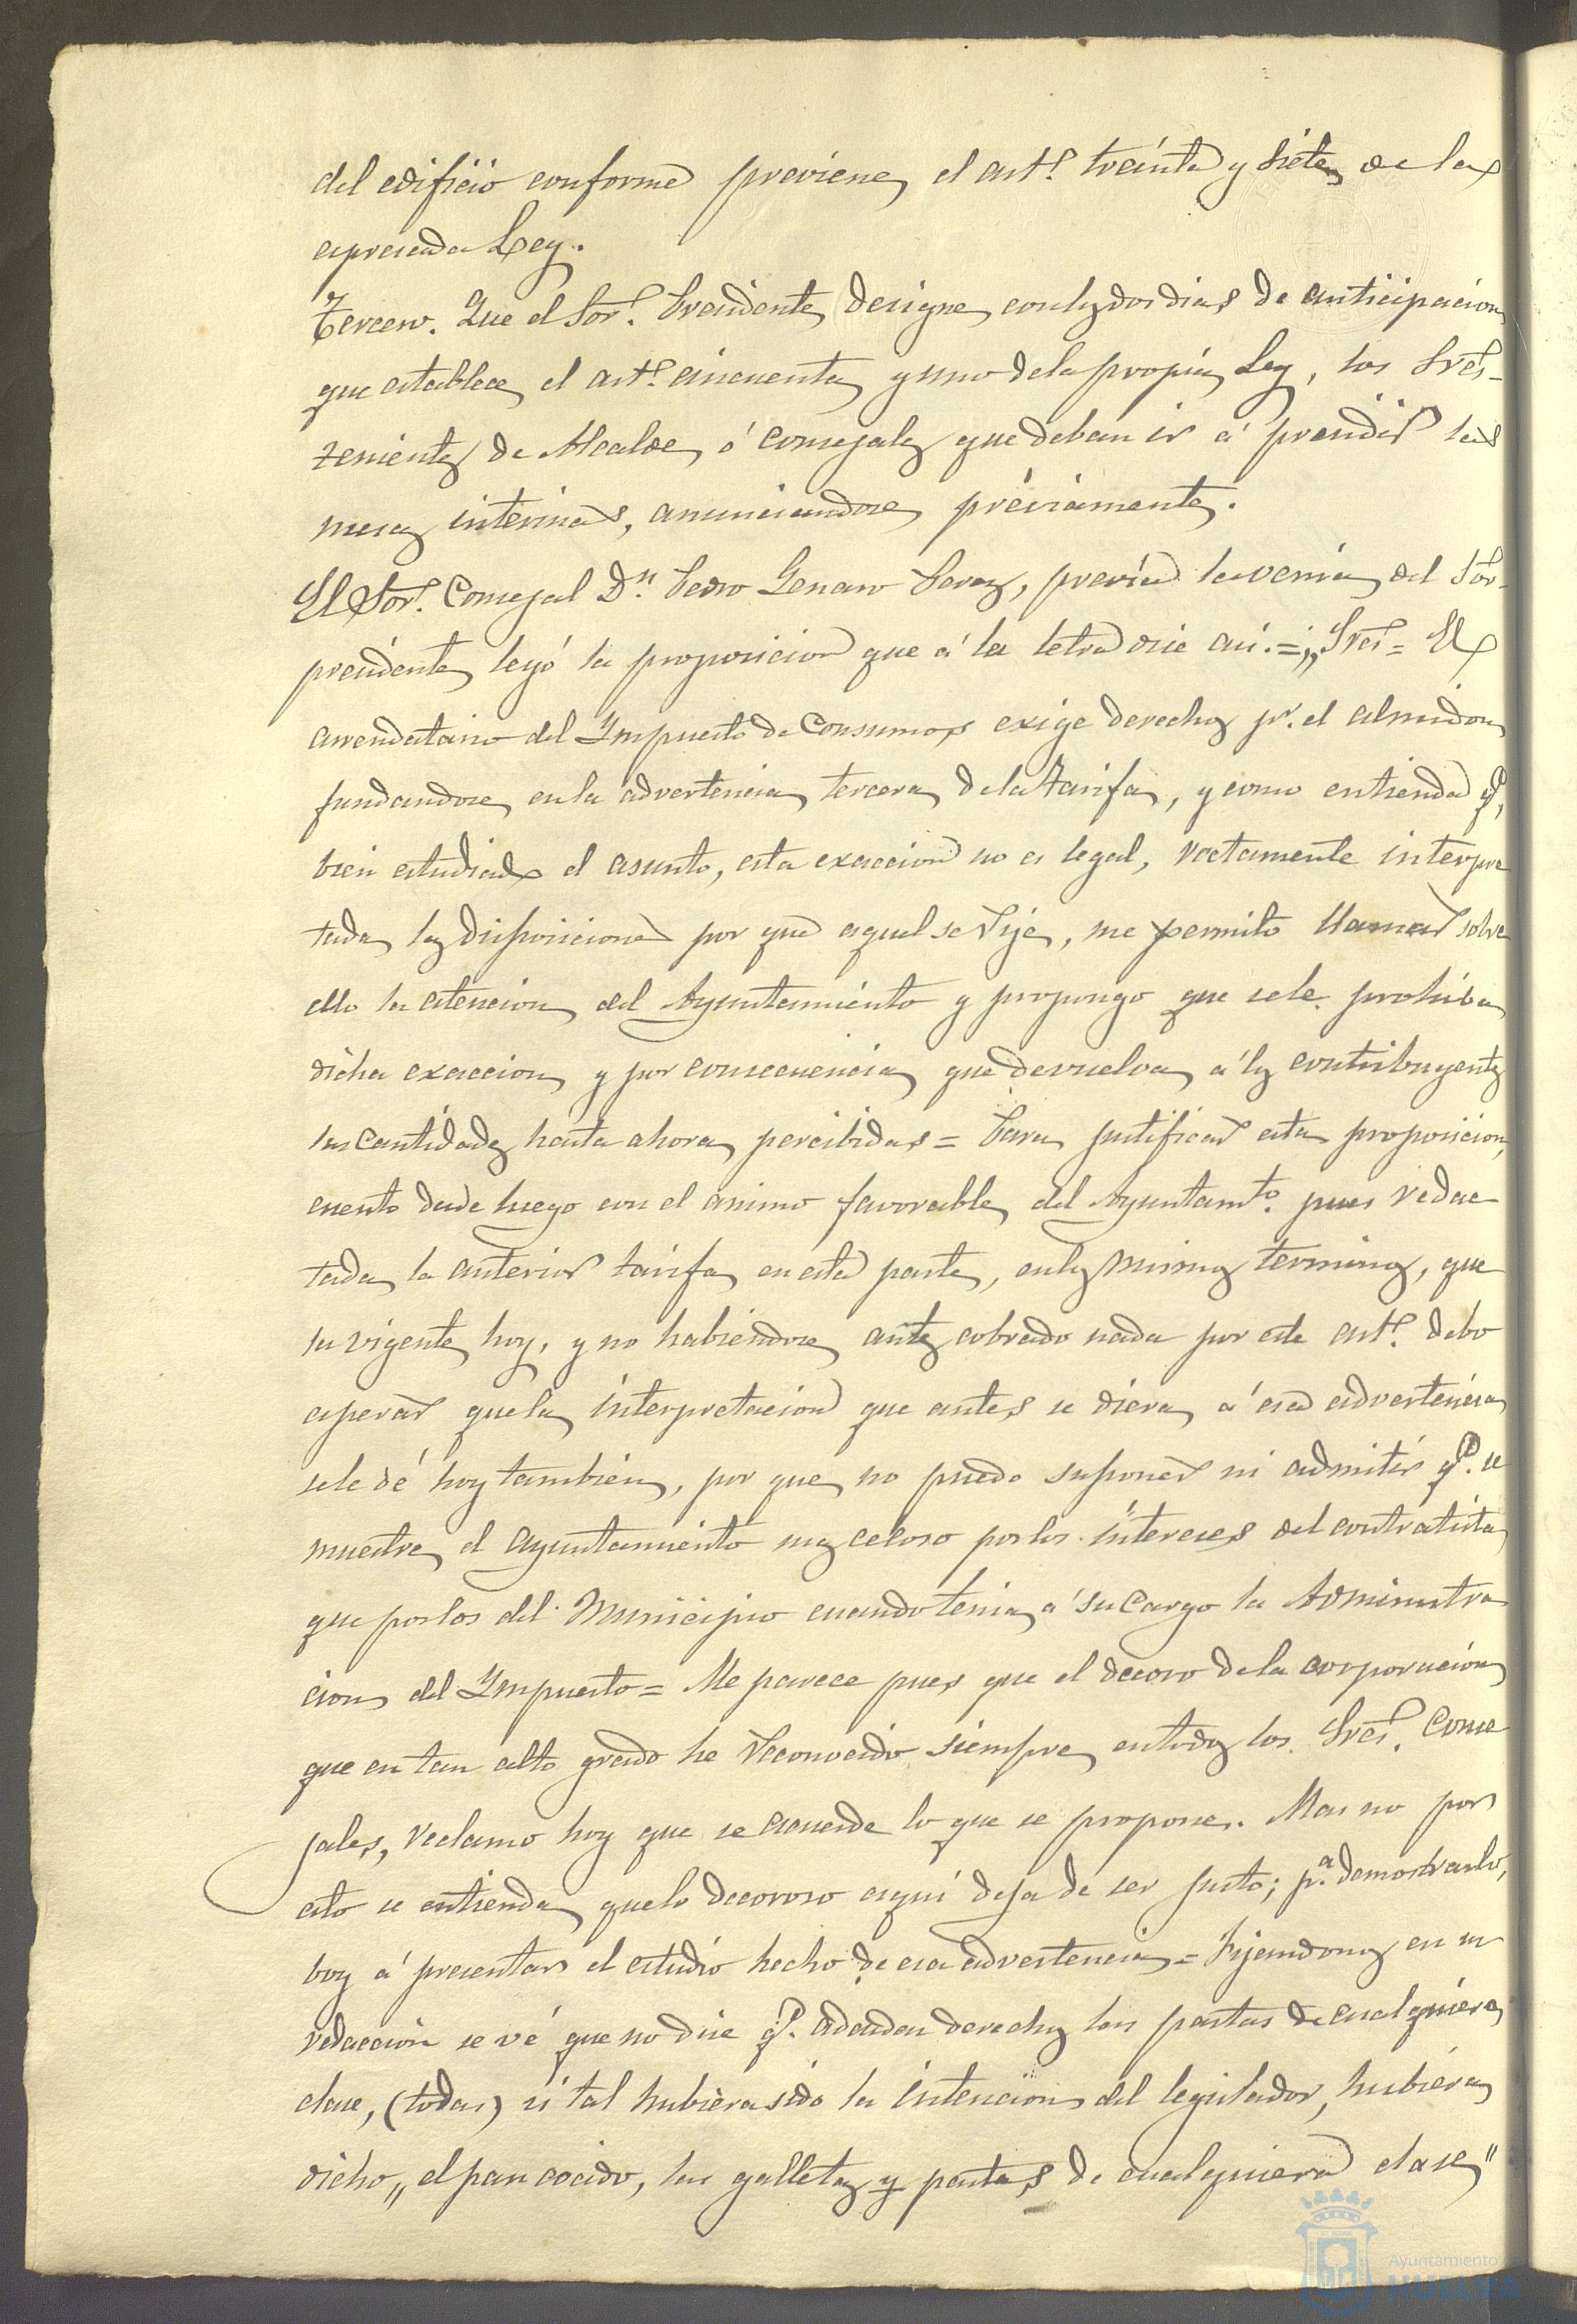 del edificio conforme previene el art.º treinta y siete de la
espresada Ley.
Tercero. Que el Sor. Presidente designe con los dos dias de anticipacion
que establece el art.º cincuenta y uno de la propia Ley, los Sres.
tenientes de Alcalde ó Concejales que deban ir á presidir las
mesas interinas, anunciandose préviamente.
El Sor. Concejal Dn. Pedro Genaro Perez, previa la venia del Sor.
presidente leyó la proposicion que á la letra dice asi. = „Sres = El
arrendatario del Ympuesto de Consumos exige derechos pr. el almidon
fundandose en la advertencia tercera de la tarifa, y como entienda q.e,
bien estudiado el asunto, esta exaccion no es legal, rectamente interpre
tadas las disposiciones por que aquel se rije, me permito llamar sobre
ello la atencion del Ayuntamiento y propongo que se le prohiba
dicha exaccion y por consecuencia que devuelva á los contribuyentes
las cantidades hasta ahora percibidas = Para justificar esta proposicion,
cuento desde luego con el animo favorable del Ayuntamto. pues redac
tada la anterior tarifa en esta parte, en los mismos terminos, que
la vigente hoy, y no habiendose antes cobrado nada por este art.º debo
esperar que la interpretacion que antes se diera á esa advertencia
se le dé hoy tambien, por que no puedo suponer ni admitir q.e se
muestre el Ayuntamiento mas celoso por los intereses del contratista
que por los del Municipio cuando tenia á su cargo la Administra
cion del Ympuesto = Me parece pues que el decoro de la corporacion
que en tan alto grado he reconocido siempre en todos los Sres. Conce
jales, reclama hoy que se acuerde lo que se propone. Mas no por
esto se entienda que lo decoroso aqui deja de ser justo; p.a demostrarlo,
boy á presentar el estudio hecho de esa advertencia = Fijandonos en su
redaccion se vé que no dice q.e adeudan derechos las pastas de cualquiera
clase, (todas) si tal hubiera sido la intencion del legislador, hubiera
dicho „el pan cocido, las galletas y pastas de cualquiera clase"
Ayuntamiento de
HUELVA